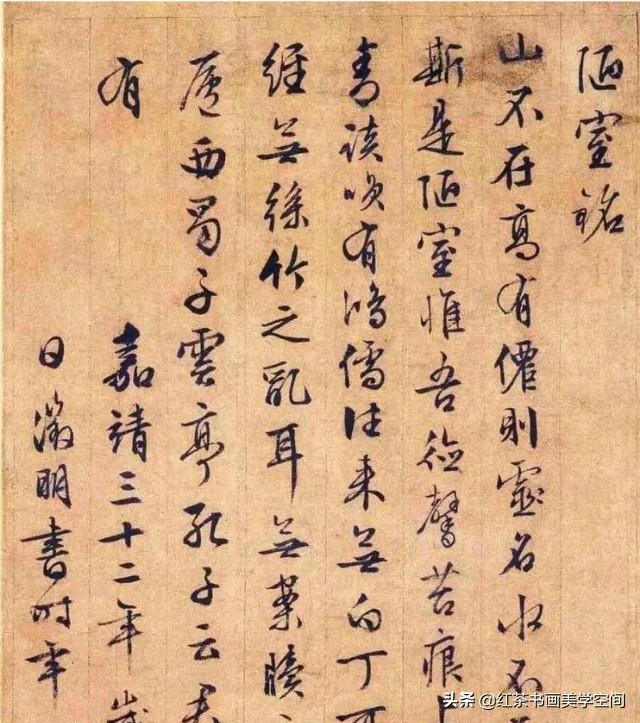 陋室銘
山不在高有僊則靈名水不
斯是陋室惟吾德馨苔痕
青談笑有鴻儒往来無白丁可
經無絲竹之亂耳無案牘
廬西蜀子雲亭孔子云君
有 嘉靖三十二年歲
日徵明書時年
头条 @红茶书画美学空间